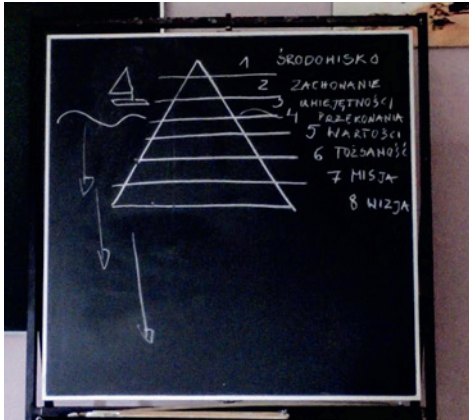 1 ŚRODOWISKO
2 ZACHOWANIE
3 UMIEJĘTNOŚCI
4 PRZEKONANIA
5 WARTOŚCI
6 TOŻSAMOŚĆ
7 MISJA
8 WIZJA